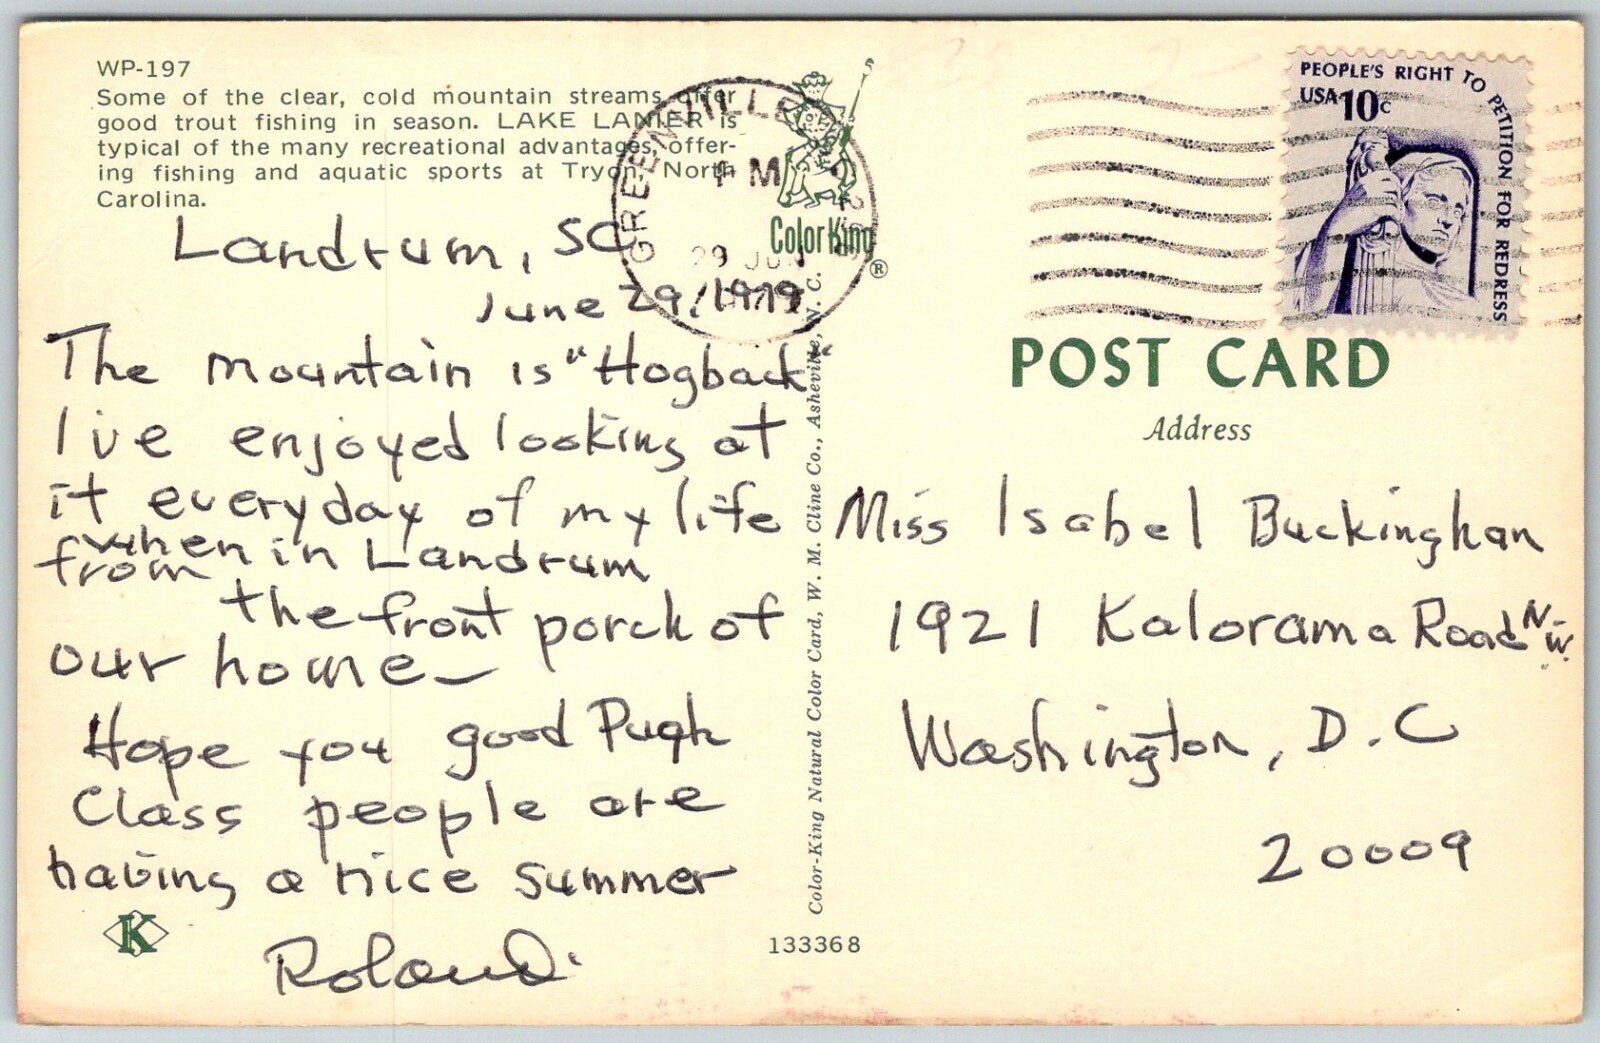 WP-197
Some of the clear, cold mountain streams offer
good trout fishing in season. LAKE LANIER is
typical of the many recreational advantages, offer-
ing fishing and aquatic sports at Tryon, North
Carolina.
Landrum, SC
June 29/1979
The mountain is "Hogback"
I've enjoyed looking at
it everyday of my life
when in Landrum
from
the front porch of
our home—
Hope you good Pugh
Class people are
having a nice summer
Roland.
K
GREENVILLE
PM
29 JUN
1979
Color King
®
Color-King Natural Color Card, W. M. Cline Co., Asheville, N. C.
133368
PEOPLE'S RIGHT TO PETITION FOR REDRESS
USA 10c
POST CARD
Address
Miss Isabel Buckinghan
1921 Kalorama Road N.W.
Washington, D.C
20009